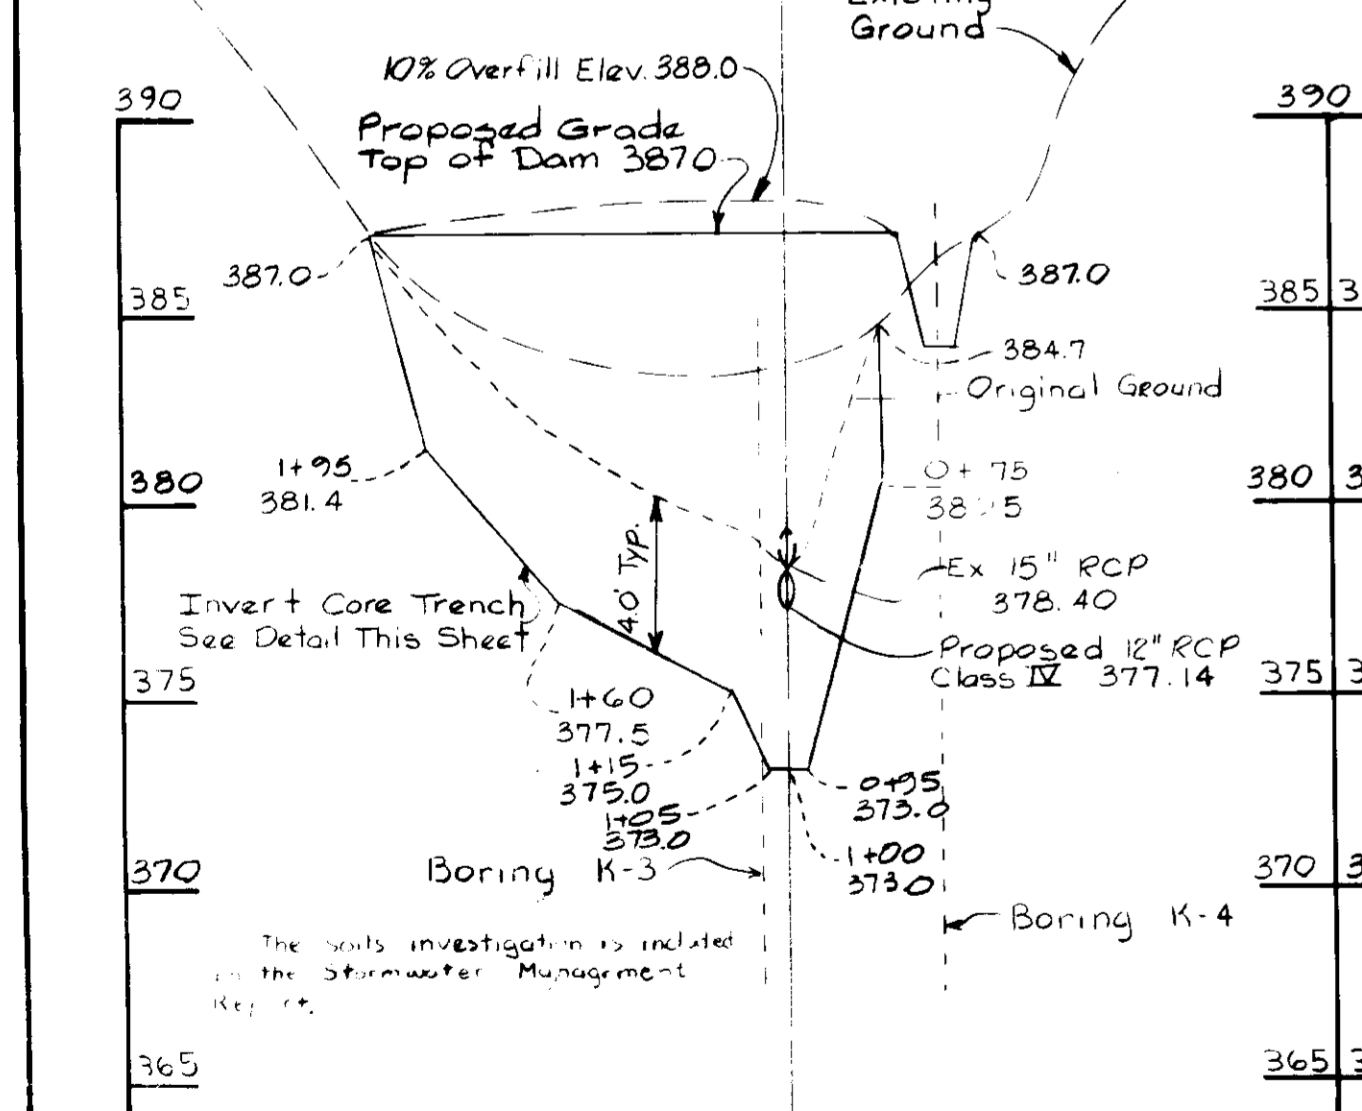 Ground
10% Overfill Elev. 388.0
390
390
Proposed Grade
Top of Dam 3870
387.0
387.0
385
385 3
384.7
Original Ground
1+95
381.4
380
380 3
0+75
4.0' Typ.
Ex 15" RCP
378.40
Invert Core Trench
See Detail This Sheet
Proposed 12" RCP
Class IV 377.14
375
375 3
1+60
377.5
1+15
375.0
1+05
373.0
0+95
373.0
1+00
3730
370
370 3
Boring K-3
Boring K-4
The soils investigation is included
the Stormwater Management
365
365 3